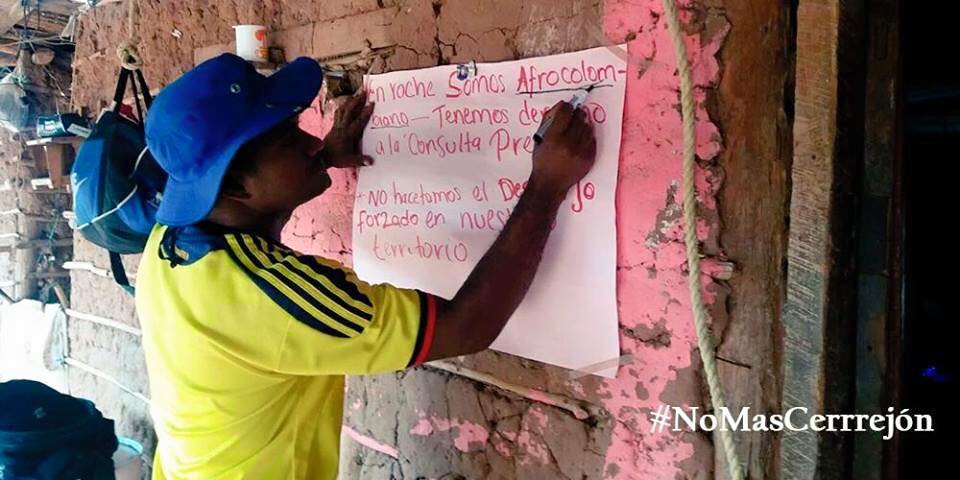 En roche Somos Afrocolom-
biano - Tenemos
a la Consulta
- NO hacetamos el
forzado en
territorio
#NoMasCerrrejón